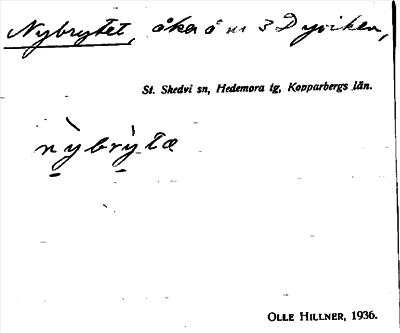 Nybrytet, åker å nr 3 Dyviken,
St. Skedvi sn, Hedemora tg, Kopparbergs län.
nỳbrỳtæ
OLLE HILLNER, 1936.